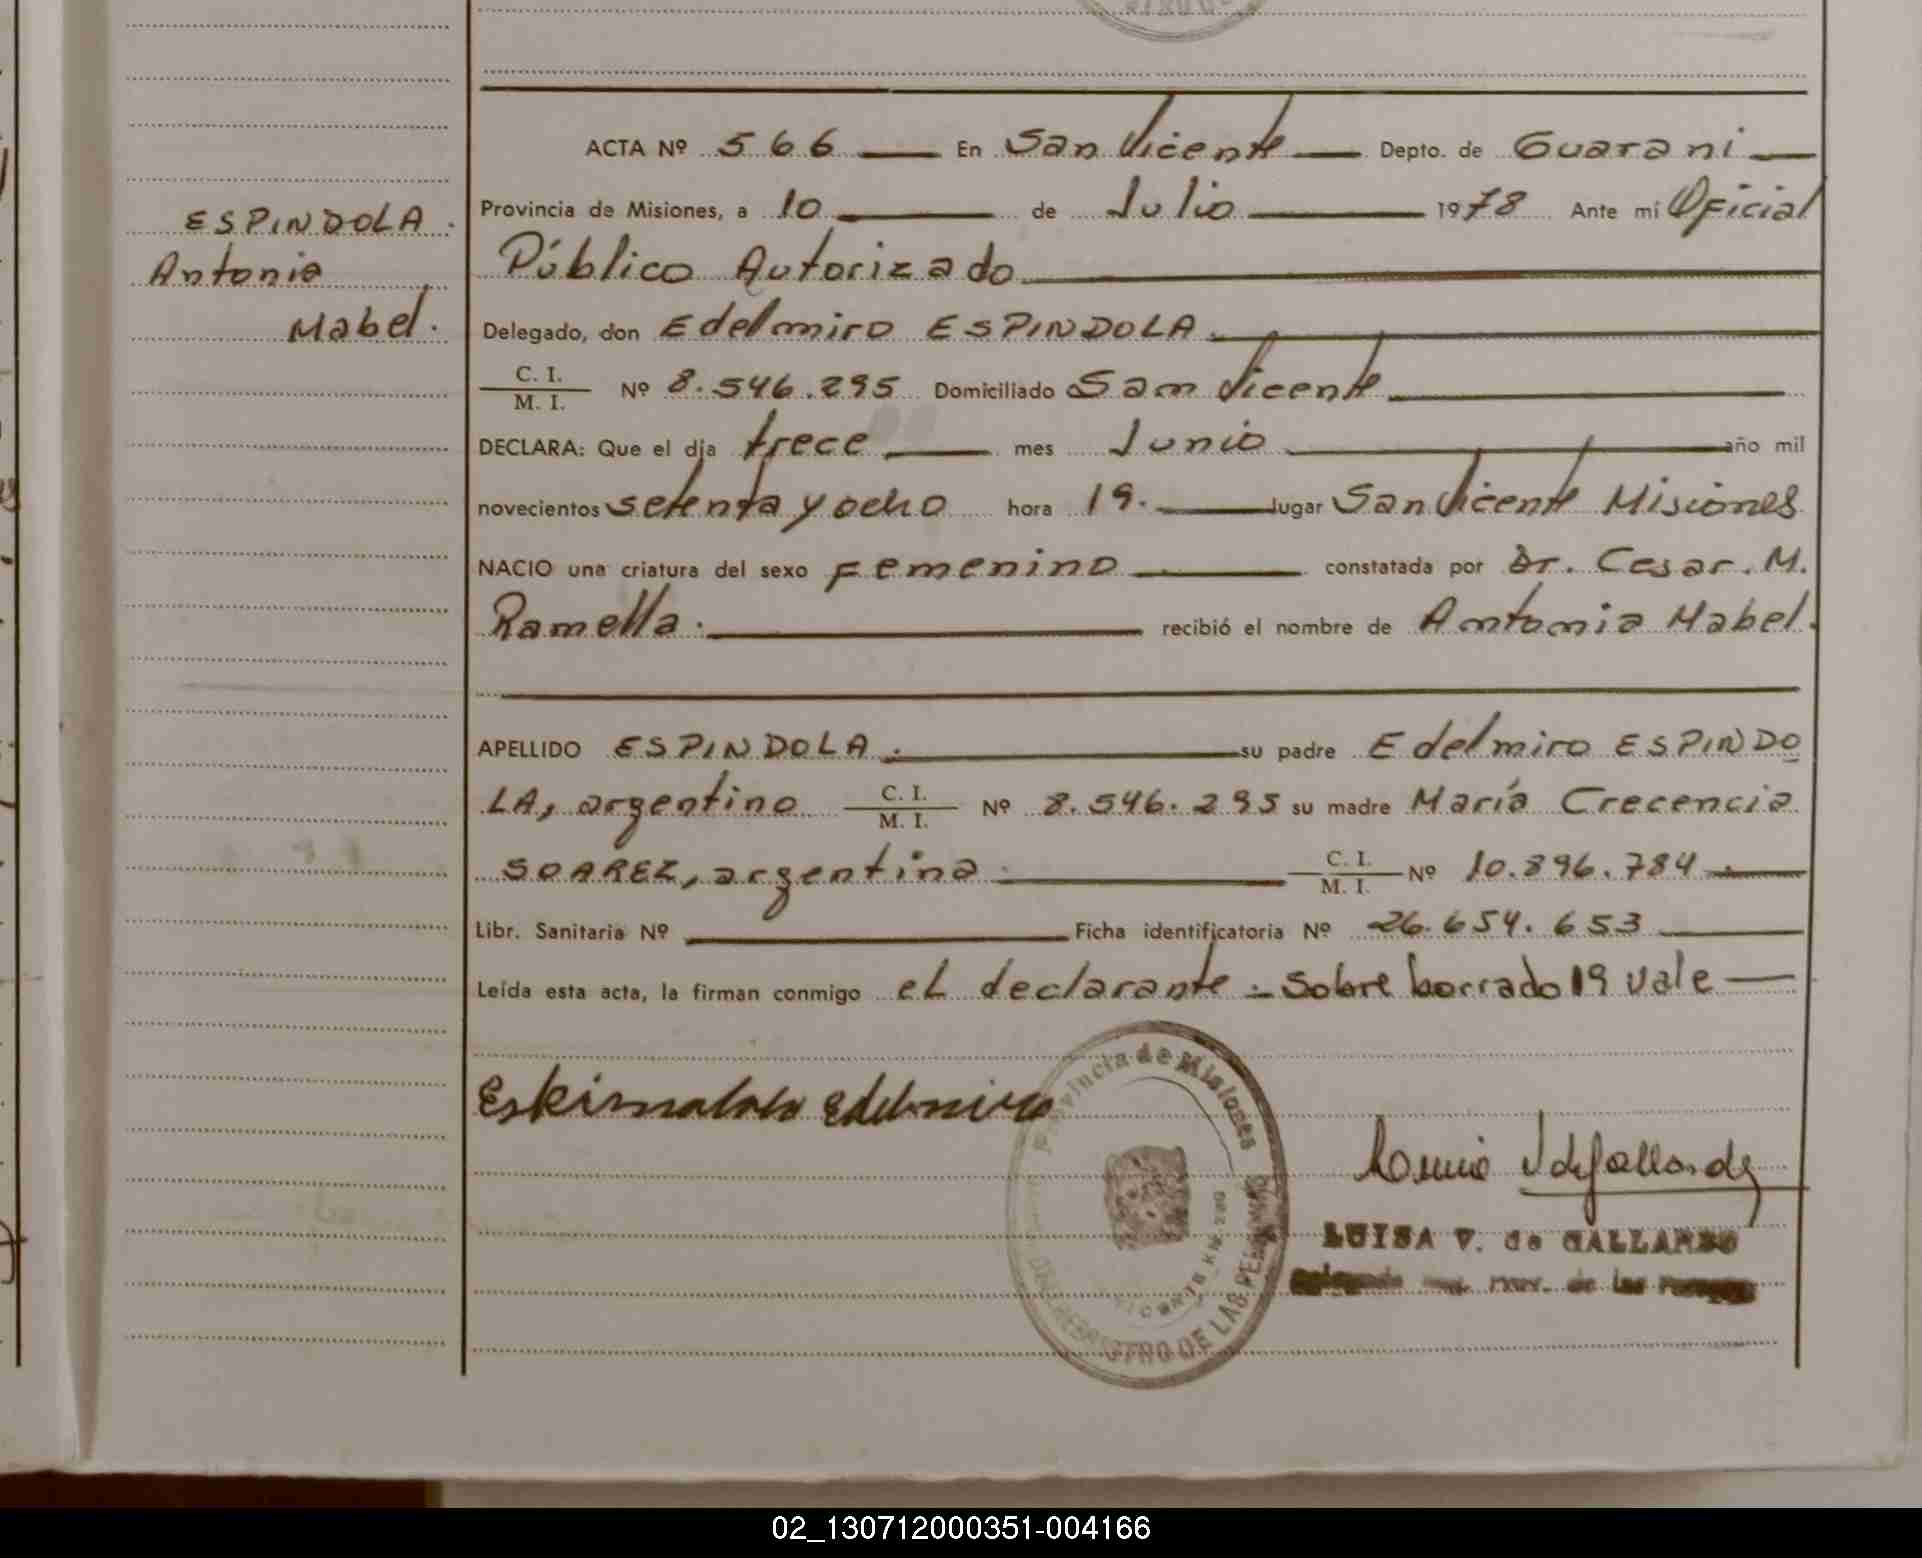 ACTA Nº 566 En San Vicente Depto. de Guarani
Provincia de Misiones, a 10 de Julio 1978 Ante mí Oficial
ESPINDOLA.
Público Autorizado
Antonia
Mabel.
Delegado, don Edelmiro ESPINDOLA.
C. I.
M. I.
Nº 8.546.295 Domiciliado San Vicente
DECLARA: Que el día trece mes Junio año mil
novecientos setenta y ocho hora 19. lugar San Vicente Misiones
NACIO una criatura del sexo Femenino constatada por Dr. Cesar. M.
Ramella. recibió el nombre de Antonia Mabel.
APELLIDO ESPINDOLA. su padre Edelmiro ESPINDO
LA, argentino C. I. M. I. Nº 8.546.295 su madre María Crecencia
SOAREZ, argentina C. I. M. I. Nº 10.896.784
Libr. Sanitaria Nº Ficha identificatoria Nº 26.654.653
Leída esta acta, la firman conmigo el declarante. - Sobre borrado 19 vale
Provincia de Misiones
REGISTRO DE LAS PERSONAS
LUISA V. de GALLARDO
de las
02_130712000351-004166